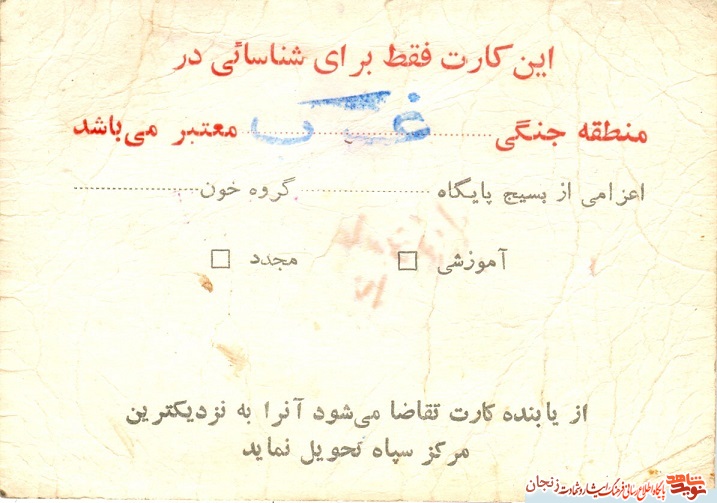 این کارت فقط برای شناسائی در
منطقه جنگی غرب معتبر می‌باشد
اعزامی از بسیج پایگاه .......... گروه خون ..........
آموزشی □ مجدد □
از یابنده کارت تقاضا می‌شود آنرا به نزدیکترین
مرکز سپاه تحویل نماید
نوید شاهد پایگاه اطلاع رسانی فرهنگ ایثار و شهادت زنجان